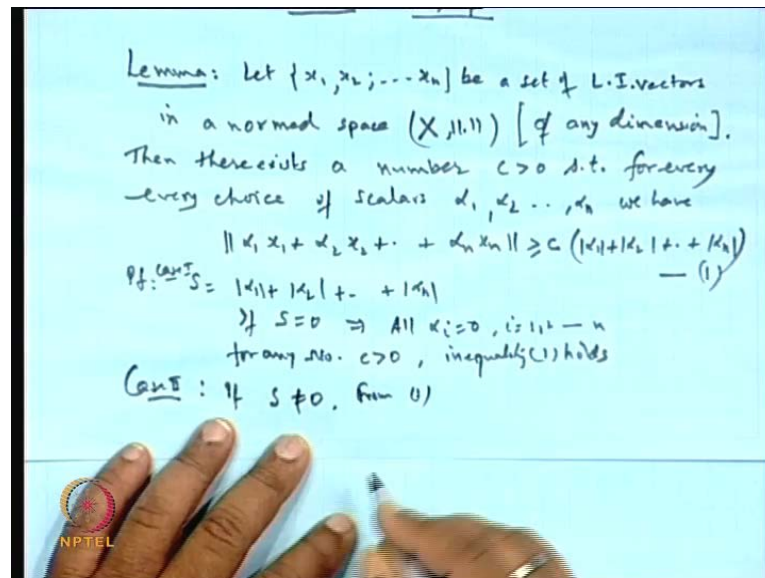 Lemma: Let {x₁, x₂, ... xₙ] be a set of L.I. vectors
in a normed space (X, ||.||) [of any dimension].
Then there exists a number c>0 s.t. for every
every choice of scalars α₁, α₂ .., αₙ we have
||α₁x₁ + α₂x₂ + . + αₙxₙ|| ≥ c (|α₁|+|α₂|+..+|αₙ|)
— (1)
Pf: Case I S = |α₁|+|α₂|+.. +|αₙ|
If S=0 ⇒ All αᵢ=0, i=1,2 — n
for any No. c>0, inequality (1) holds
Case II : If S≠0. From (1)
NPTEL